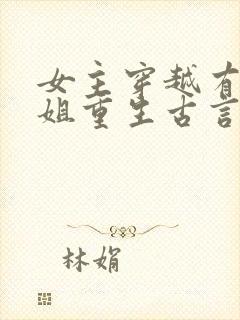 女主穿越有
姐重生古言
林娟